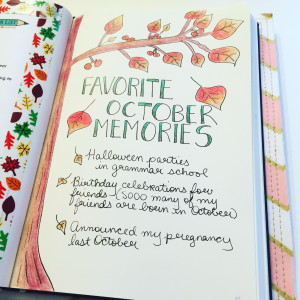 FAVORITE
OCTOBER
MEMORIES
Halloween parties
in grammar school
Birthday celebrations for
friends (SOOO many of my
friends are born in October)
Announced my pregnancy
last October